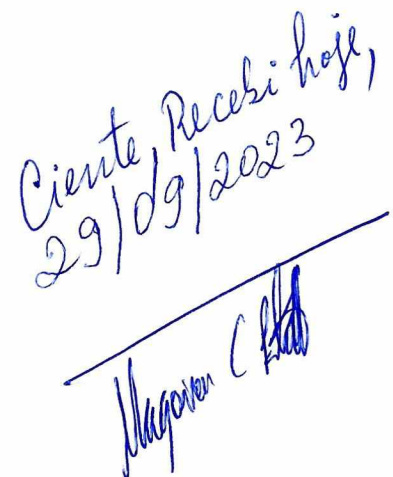 Ciente, Recebi hoje,
29/09/2023